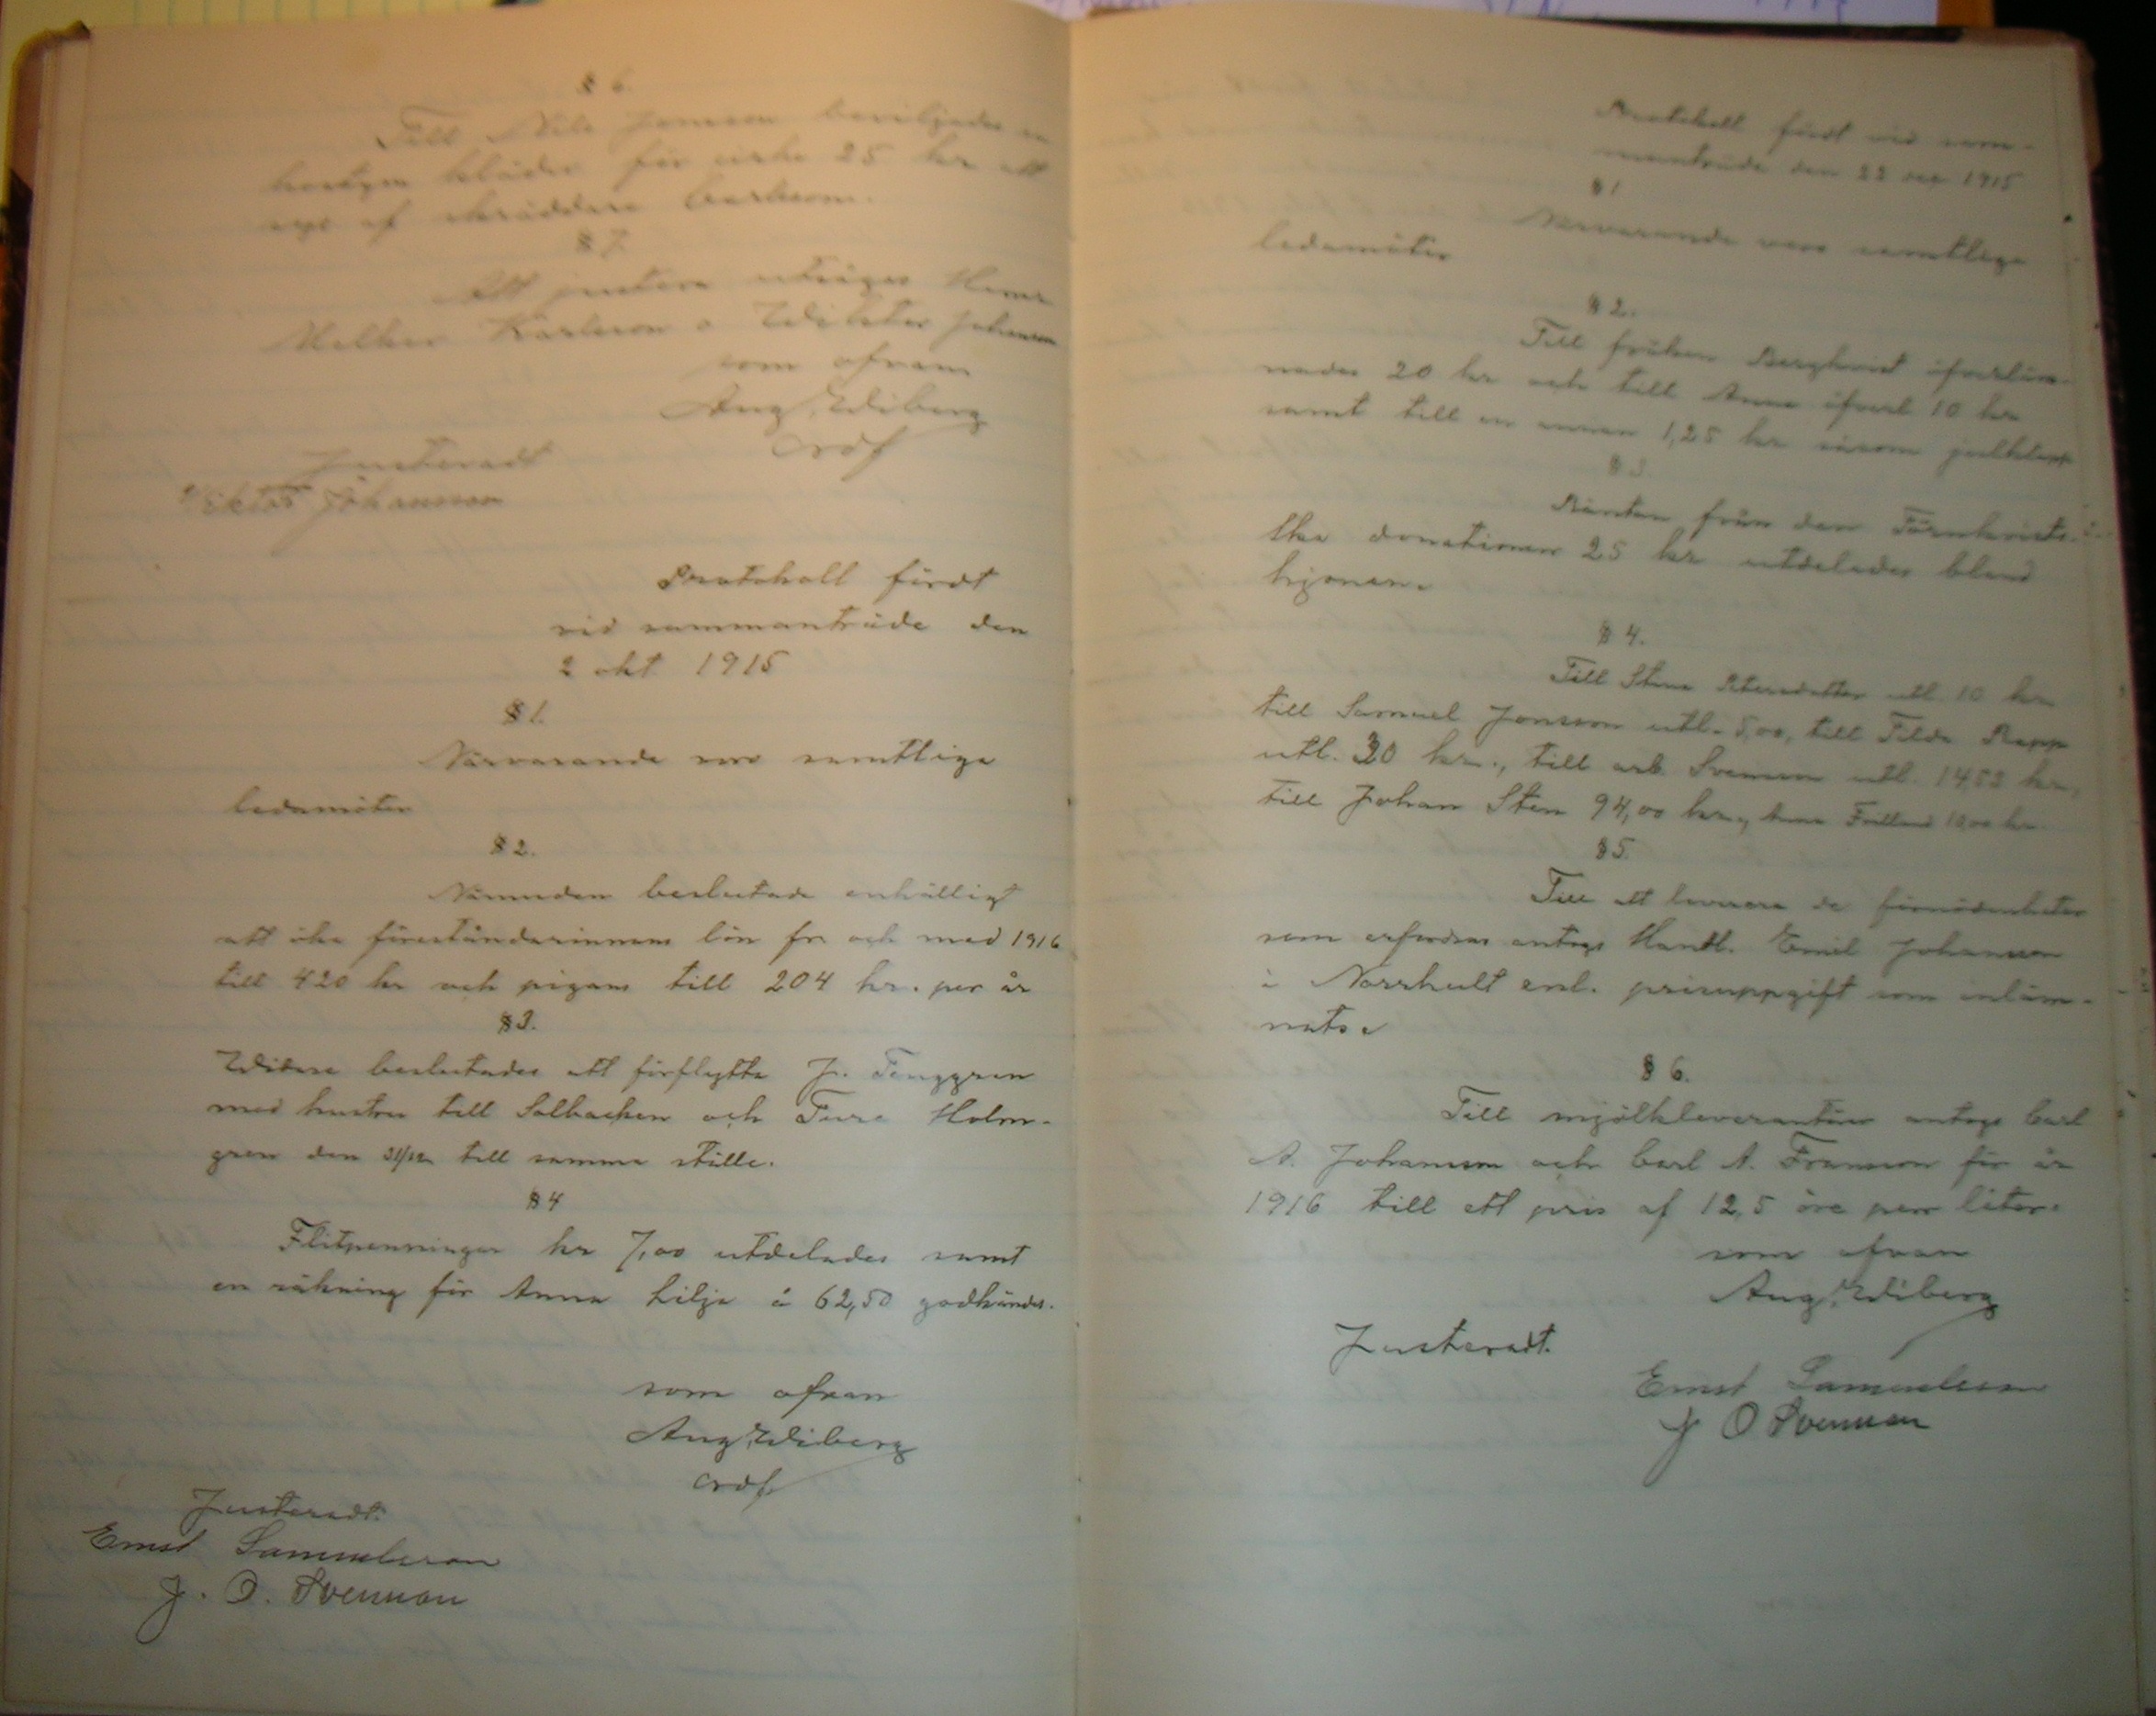 § 6.
Till Nils Jonsson beviljades en
kostym kläder för cirka 25 kr att
sys af skräddare Carlsson.
§ 7.
Att justera utsågos Herrar
Melker Karlsson o Wiktor Johansson
som ofvan
Aug. Wiberg
ordf
Justeradt
Viktor Johansson
Protokoll fördt
vid sammanträde den
2 okt 1915
§ 1.
Närvarande voro samtliga
ledamöter
§ 2.
Nämnden beslutade enhälligt
att öka föreståndarinnans lön fr och med 1916
till 420 kr och pigans till 204 kr. per år
§ 3.
Widare beslutades att förflytta J. Tenggren
med hustru till Solbacken och Ture Holm-
gren den 31/12 till samma ställe.
§ 4
Flitpenningar kr 7,00 utdelades samt
en räkning för Anna Lilja å 62,50 godkändes.
som ofvan
Aug. Wiberg
ordf
Justeradt.
Ernst Samuelsson
J. O. Svensson
Protokoll fördt vid sam-
manträde den 22 dec 1915
§ 1
Närvarande voro samtliga
ledamöter
§ 2.
Till fröken Bergkvist öfverläm-
nades 20 kr och till Anna öfverl 10 kr
samt till en annan 1,25 kr såsom julklapp
§ 3.
Räntan från den Törnkvist-
ska donationen 25 kr utdelades bland
hjonen.
§ 4.
Till Stina Petersdotter utl. 10 kr
till Samuel Jonsson utl. 5,00, till Tilda Rapp
utl. 30 kr., till arb. Svensson utl. kr,
till Johan Sten 94,00 kr., Anna 10,00 kr.
§ 5.
Till att leverera de förnödenheter
som erfordras antogs Handl. Emil Johansson
i Norrhult enl. prisuppgift som inläm-
nats.
§ 6.
Till mjölkleverantörer antogs Carl
A. Johansson och Carl A. Fransson för år
1916 till ett pris af 12,5 öre per liter.
som ofvan
Aug. Wiberg
Justeradt.
Ernst Samuelsson
J O Svensson